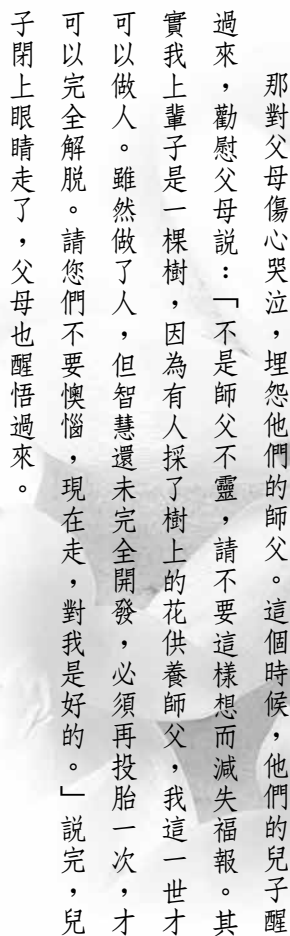 那對父母傷心哭泣，埋怨他們的師父。這個時候，他們的兒子醒
過來，勸慰父母說：「不是師父不靈，請不要這樣想而減失福報。其
實我上輩子是一棵樹，因為有人採了樹上的花供養師父，我這一世才
可以做人。雖然做了人，但智慧還未完全開發，必須再投胎一次，才
可以完全解脫。請您們不要懊惱，現在走，對我是好的。」說完，兒
子閉上眼睛走了，父母也醒悟過來。